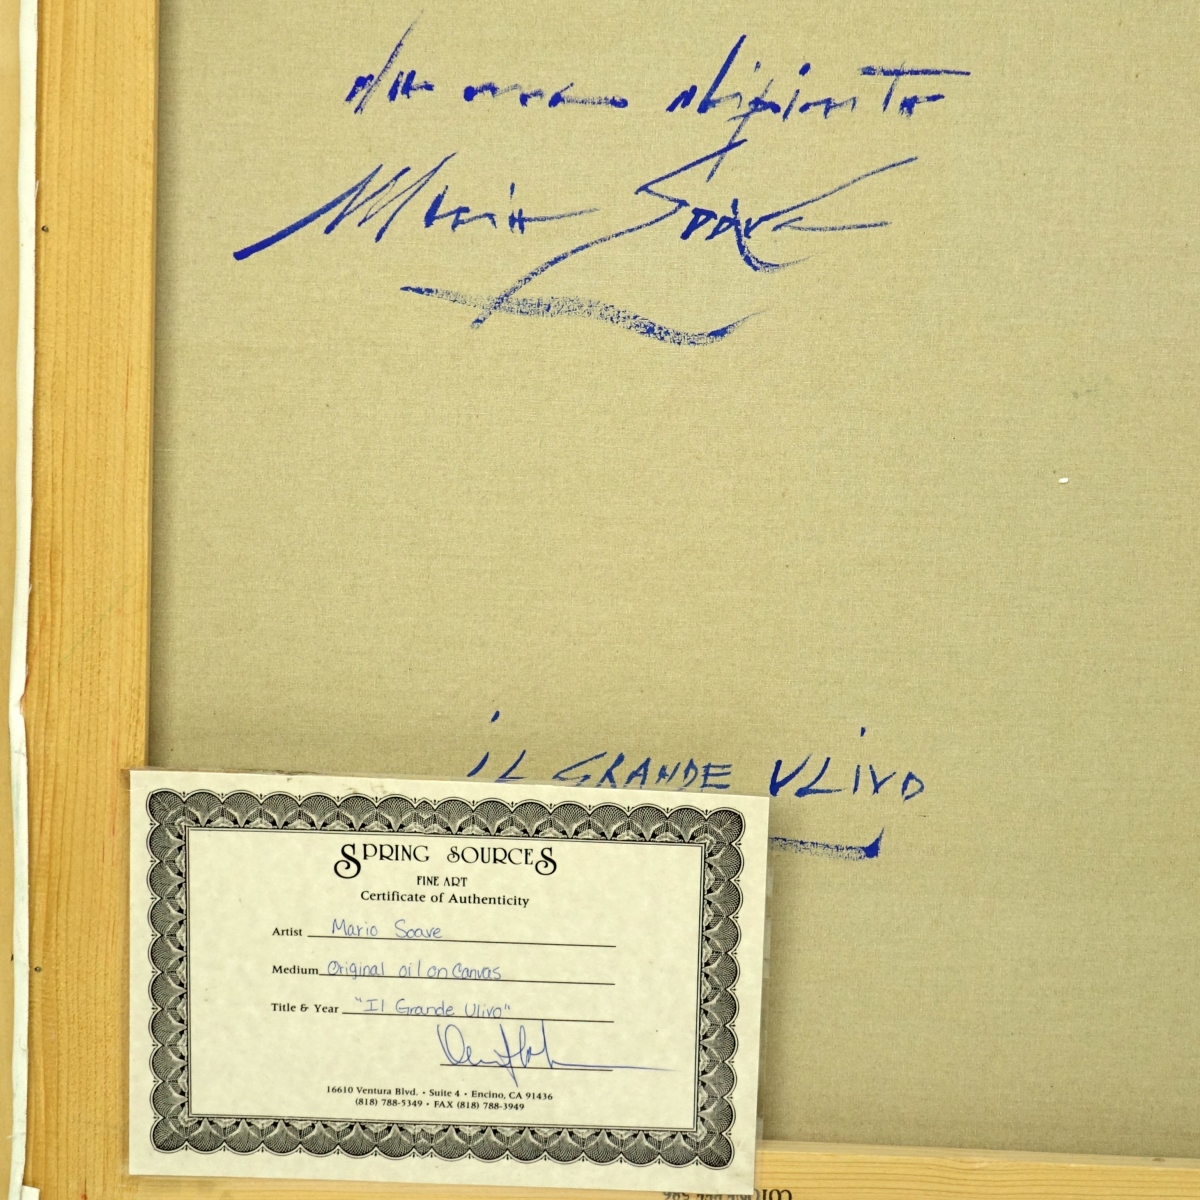 da me dipinto
Mario Soave
iL GRANDE ULIVO
SPRING SOURCES
FINE ART
Certificate of Authenticity
Artist Mario Soave
Medium Original oil on Canvas
Title & Year "Il Grande Ulivo"
16610 Ventura Blvd. • Suite 4 • Encino, CA 91436
(818) 788-5349 • FAX (818) 788-3949